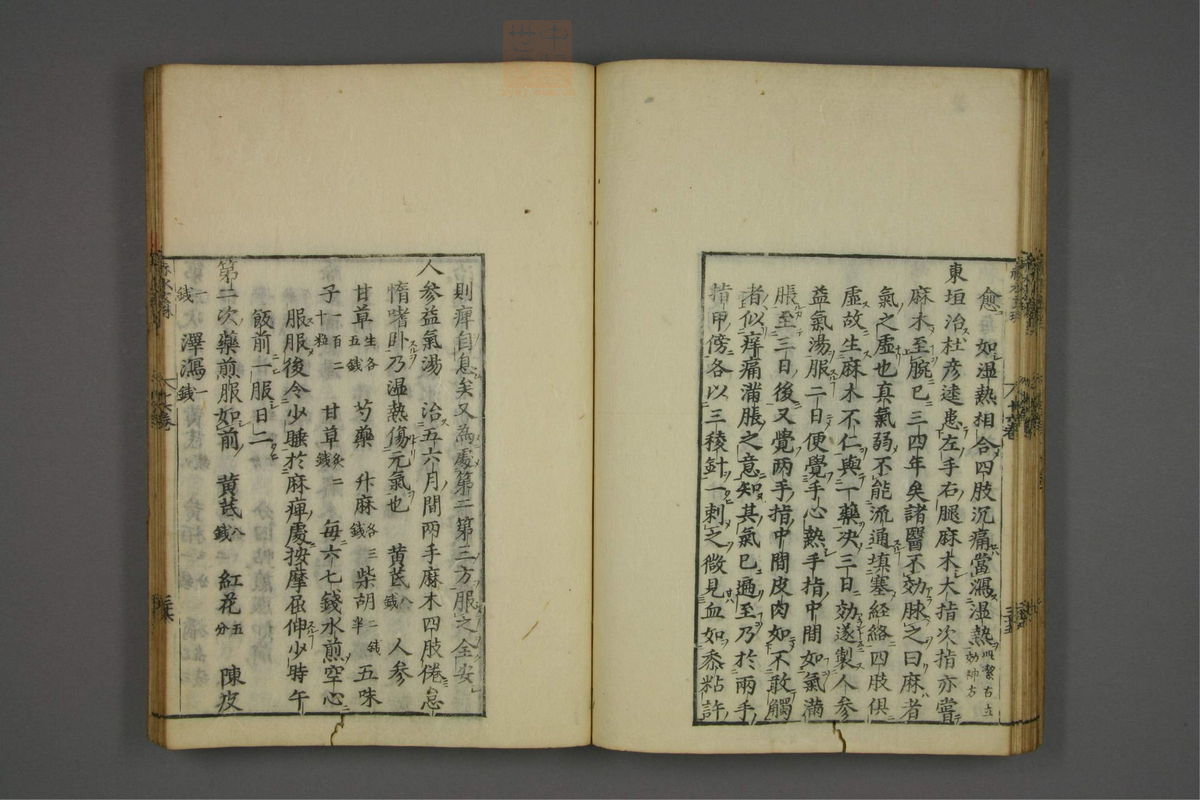 愈如濕熱相合四肢沉痛當瀉濕熱此絜古立効神方
東垣治杜彦逵患左手右腿麻木大指次指亦嘗
麻木至腕已三四年矣諸醫不効脉之曰麻者
氣之虚也真氣弱不能流通填塞経絡四肢俱
虚故生麻木不仁與一藥决三日効遂製人参
益氣湯服二日便覺手心熱手指中間如氣滿
脹至三日後又覺兩手指中間皮肉如不敢觸
者似痒痛滿脹之意知其氣已遍至乃於兩手
指甲傍各以三稜針一刺之微見血如黍粘許
則痺自息矣又為處第二第三方服之全安
人参益氣湯 治五六月間兩手麻木四肢倦怠
惰嗜卧乃濕熱傷元氣也 黄芪八錢 人参
甘草生各五錢 芍藥 升麻各三錢 柴胡二錢半 五味
子一百二十粒 甘草炙二錢 毎六七錢水煎空心
服服後令少睡於麻痺處按摩屈伸少時午
飯前一服日二
第二次藥煎服如前 黄芪八錢 紅花五分 陳皮
一錢 澤瀉一錢